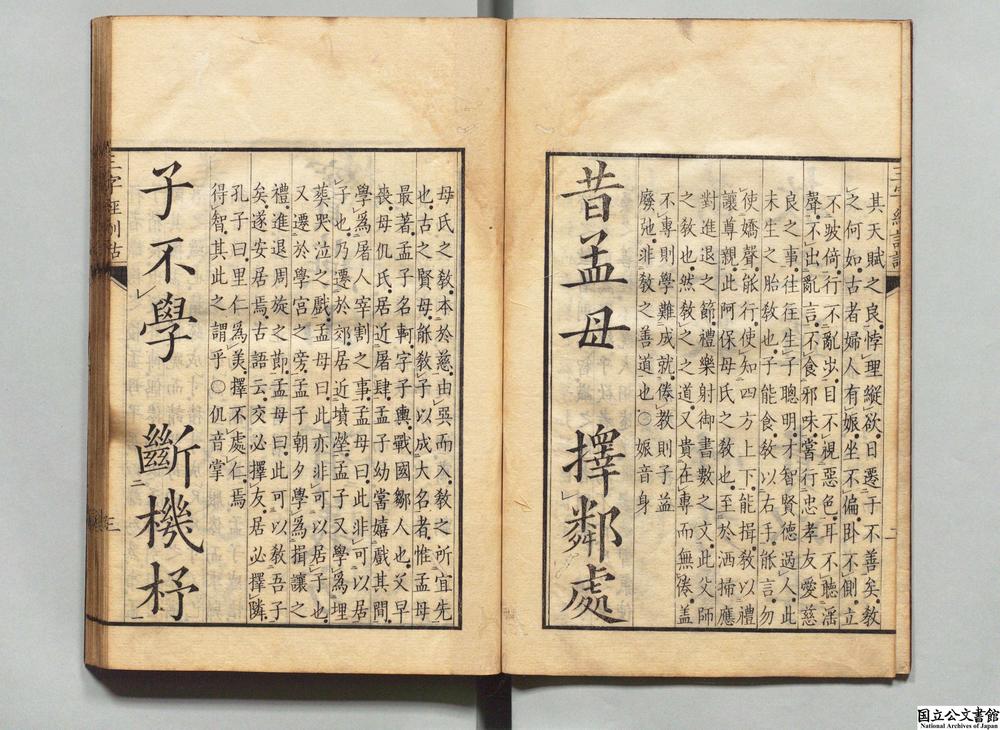 其天賦之良悖理縱欲日遷于不善矣教
之何如古者婦人有娠坐不偏卧不側立
不跛倚行不亂步目不視惡色耳不聽淫
聲不出亂言不食邪味嘗行忠孝友愛慈
良之事往往生子聰明才智賢德過人此
未生之胎教也子能食教以右手能言勿
使嬌聲能行使知四方上下能揖教以禮
讓尊親此阿保母氏之教也至於洒掃應
對進退之節禮樂射御書數之文此父師
之教也然教之之道又貴在專而無倦蓋
不專則學難成就倦教則子益
廢弛非教之善道也○娠音身
昔孟母 擇鄰處
母氏之教本於慈由巽而入教之所宜先
也古之賢母能教子以成大名者惟孟母
最著孟子名軻字子輿戰國鄒人也父早
喪母仉氏居近屠肆孟子幼當嬉戲其間
學為屠人宰割之事孟母曰此非可以居
子也乃遷於郊居近墳塋孟子又學為埋
葬哭泣之戲孟母曰此亦非可以居子也
又遷於學宮之旁孟子朝夕學為揖讓之
禮進退周旋之節孟母曰此可以教吾子
矣遂安居焉古語云交必擇友居必擇隣
孔子曰里仁為美擇不處仁焉
得智其此之謂乎○仉音掌
子不學 斷機杼
三字經訓詁
三
国立公文書館
National Archives of Japan